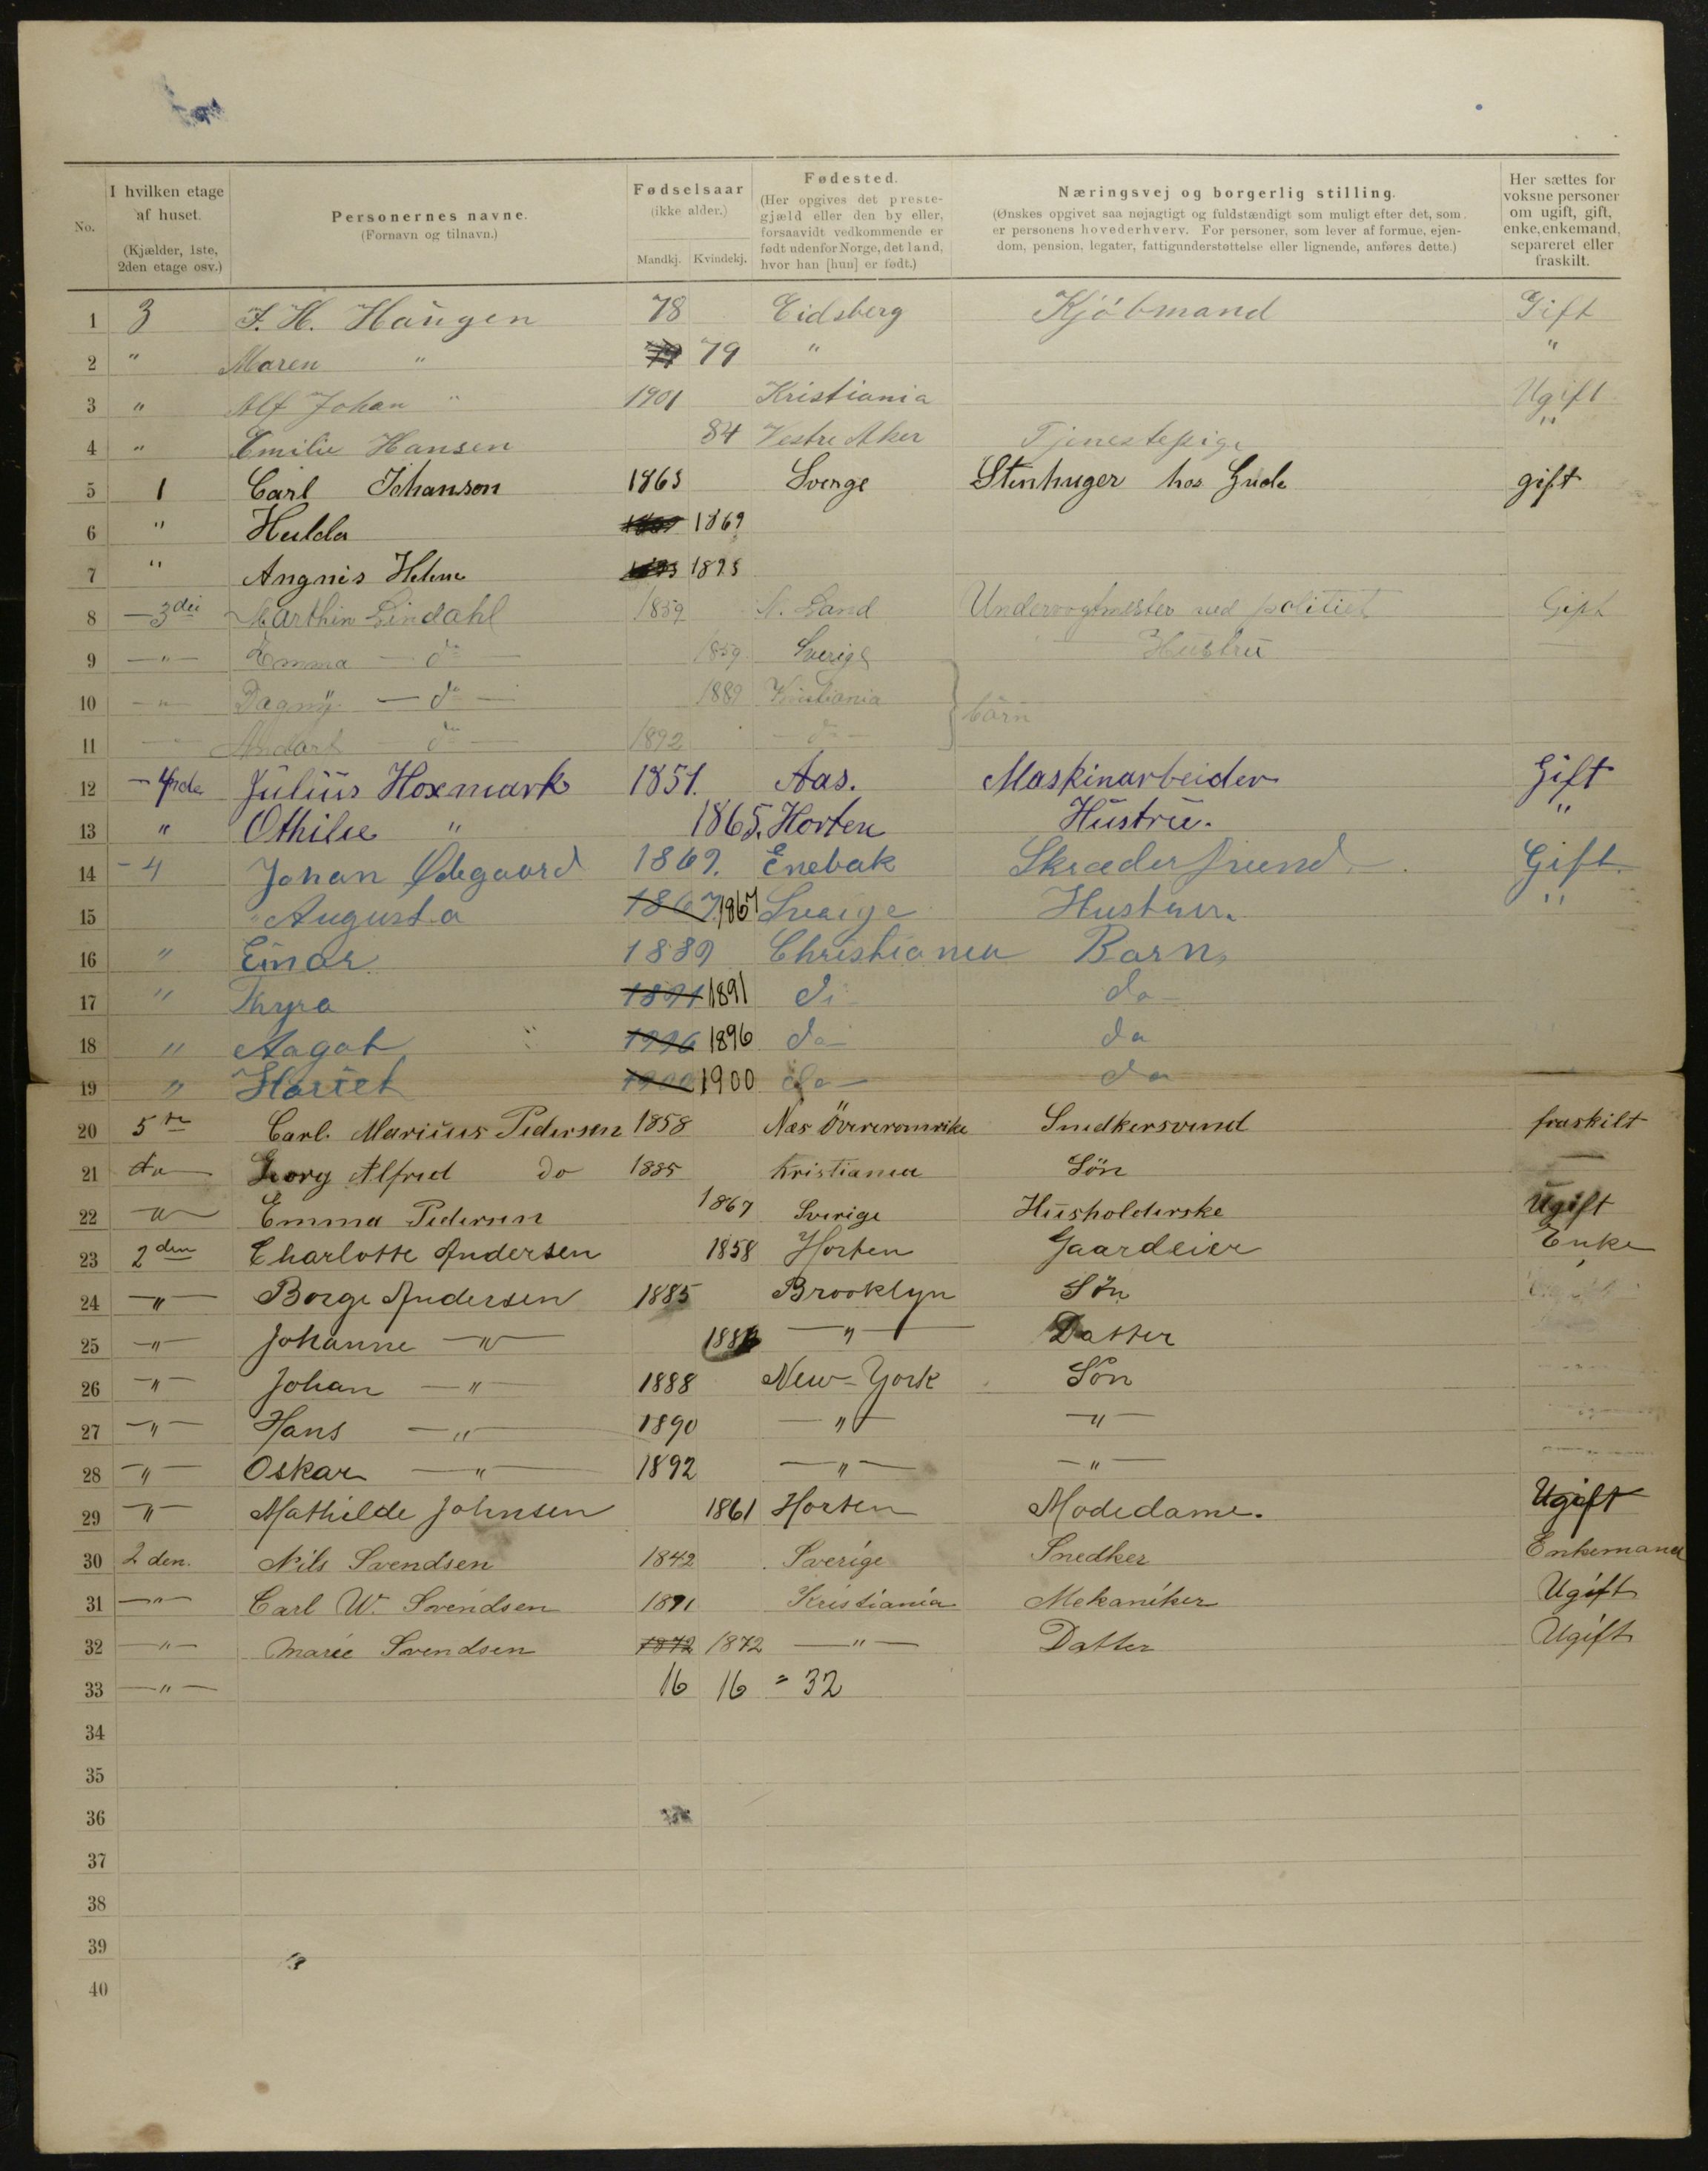 No. | I hvilken etage af huset. (Kjælder, 1ste, 2den etage osv.) | Personernes navne. (Fornavn og tilnavn.) | Fødselsaar (ikke alder.) Mandkj. Kvindekj. | Fødested. (Her opgives det prestegjæld eller den by eller, forsaavidt vedkommende er født udenfor Norge, det land, hvor han [hun] er født.) | Næringsvej og borgerlig stilling. (Ønskes opgivet saa nøjagtigt og fuldstændigt som muligt efter det, som er personens hovederhverv. For personer, som lever af formue, ejendom, pension, legater, fattigunderstøttelse eller lignende, anføres dette.) | Her sættes for voksne personer om ugift, gift, enke, enkemand, separeret eller fraskilt.
1 3 J. H. Haugen 78 Eidsberg Kjöbmand Gift
2 " Maren " 79 " "
3 " Alf Johan " 1901 Kristiania Ugift
4 " Emilie Hansen 84 Vestre Aker Tjenestepige "
5 1 Carl Johanson 1865 Sverge Stenhuger hos Gude gift
6 " Hulda 1869
7 " Angnis Helene 1895
8 3die Marthin Lindahl 1859 N. Land Undervagtmester ved politiet Gift
9 " Emma do 1859 Sverige Hustru
10 " Dagny do 1889 Kristiania
11 do 1892 do börn
12 4rde Julius Hoxmark 1851. Aas. Maskinarbeider Gift
13 " Othilie " 1865. Horten Hustru. "
14 4 Johan Ødegaard 1869. Enebak Skrædersvend Gift.
15 " Augusta 1867 1867 Sverige Hustru. "
16 " Einar 1889 Christiania Barn
17 " Thyra 1891 1891 do do
18 " Aagot 1896 1896 do do
19 " Hariet 1900 1900 do do
20 5te Carl. Marius Pedersen 1858 Næs Övereromrike Snedkersvend fraskilt
21 do Georg Alfred do 1885 Kristiania Sön
22 " Emma Pedersen 1867 Sverige Husholderske Ugift
23 2den Charlotte Andersen 1858 Horten Gaardeier Enke
24 " Borge Andersen 1885 Brooklyn Sön
25 " Johanne " " Datter
26 " Johan " 1888 New-York Sön
27 " Hans " 1890 " "
28 " Oskar " 1892 " "
29 " Mathilde Johnsen 1861 Horten Modedame. Ugift
30 2 den. Nils Svendsen 1842 Sverige Snedker Enkemand
31 " Carl W. Svendsen 1871 Kristiania Mekaniker Ugift
32 " Marie Svendsen 1872 1872 " Datter Ugift
33 " 16 16 = 32
34
35
36
37
38
39
40